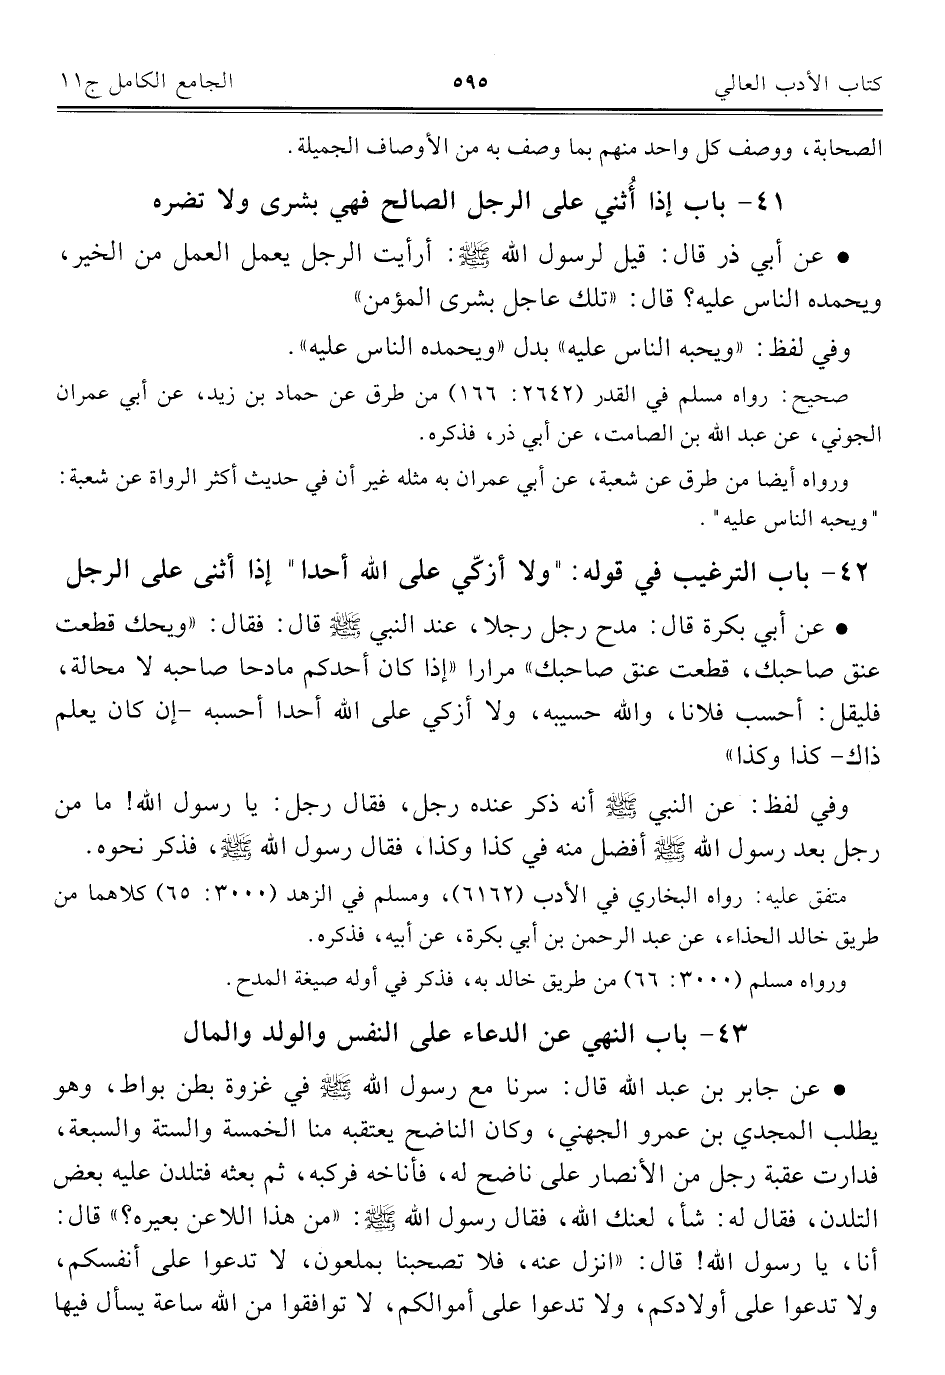 كتاب الأدب العالي ٥٩٥ الجامع الكامل ج١١
الصحابة، ووصف كل واحد منهم بما وصف به من الأوصاف الجميلة.
٤١- باب إذا أُثني على الرجل الصالح فهي بشرى ولا تضره
● عن أبي ذر قال: قيل لرسول الله ﷺ: أرأيت الرجل يعمل العمل من الخير،
ويحمده الناس عليه؟ قال: «تلك عاجل بشرى المؤمن»
وفي لفظ: «ويحبه الناس عليه» بدل «ويحمده الناس عليه».
صحيح: رواه مسلم في القدر (٢٦٤٢: ١٦٦) من طرق عن حماد بن زيد، عن أبي عمران
الجوني، عن عبد الله بن الصامت، عن أبي ذر، فذكره.
ورواه أيضا من طرق عن شعبة، عن أبي عمران به مثله غير أن في حديث أكثر الرواة عن شعبة:
"ويحبه الناس عليه".
٤٢- باب الترغيب في قوله: "ولا أزكّي على الله أحدا" إذا أثنى على الرجل
● عن أبي بكرة قال: مدح رجل رجلا، عند النبي ﷺ قال: فقال: «ويحك قطعت
عنق صاحبك، قطعت عنق صاحبك» مرارا «إذا كان أحدكم مادحا صاحبه لا محالة،
فليقل: أحسب فلانا، والله حسيبه، ولا أزكي على الله أحدا أحسبه -إن كان يعلم
ذاك- كذا وكذا»
وفي لفظ: عن النبي ﷺ أنه ذكر عنده رجل، فقال رجل: يا رسول الله! ما من
رجل بعد رسول الله ﷺ أفضل منه في كذا وكذا، فقال رسول الله ﷺ، فذكر نحوه.
متفق عليه: رواه البخاري في الأدب (٦١٦٢)، ومسلم في الزهد (٣٠٠٠: ٦٥) كلاهما من
طريق خالد الحذاء، عن عبد الرحمن بن أبي بكرة، عن أبيه، فذكره.
ورواه مسلم (٣٠٠٠: ٦٦) من طريق خالد به، فذكر في أوله صيغة المدح.
٤٣- باب النهي عن الدعاء على النفس والولد والمال
● عن جابر بن عبد الله قال: سرنا مع رسول الله ﷺ في غزوة بطن بواط، وهو
يطلب المجدي بن عمرو الجهني، وكان الناضح يعتقبه منا الخمسة والستة والسبعة،
فدارت عقبة رجل من الأنصار على ناضح له، فأناخه فركبه، ثم بعثه فتلدن عليه بعض
التلدن، فقال له: شأ، لعنك الله، فقال رسول الله ﷺ: «من هذا اللاعن بعيره؟» قال:
أنا، يا رسول الله! قال: «انزل عنه، فلا تصحبنا بملعون، لا تدعوا على أنفسكم،
ولا تدعوا على أولادكم، ولا تدعوا على أموالكم، لا توافقوا من الله ساعة يسأل فيها